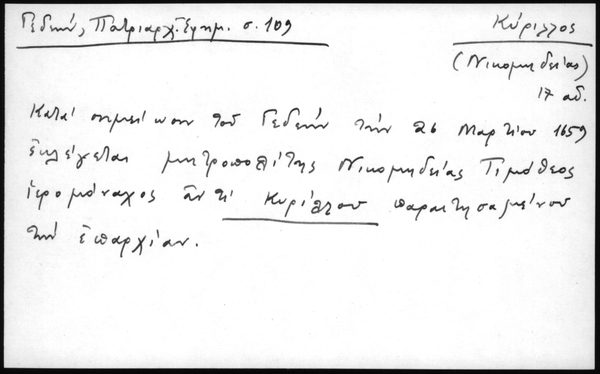 Γεδεών, Πατριαρχ. Εφημ. σ. 109
Κύριλλος
(Νικομηδείας)
17 αι.
Κατά σημείωσιν τοῦ Γεδεών τήν 26 Μαρτίου 1659
ἐκλέγεται μητροπολίτης Νικομηδείας Τιμόθεος
ἱερομόναχος ἀντί Κυρίλλου παραιτησαμένου
τήν ἐπαρχίαν.